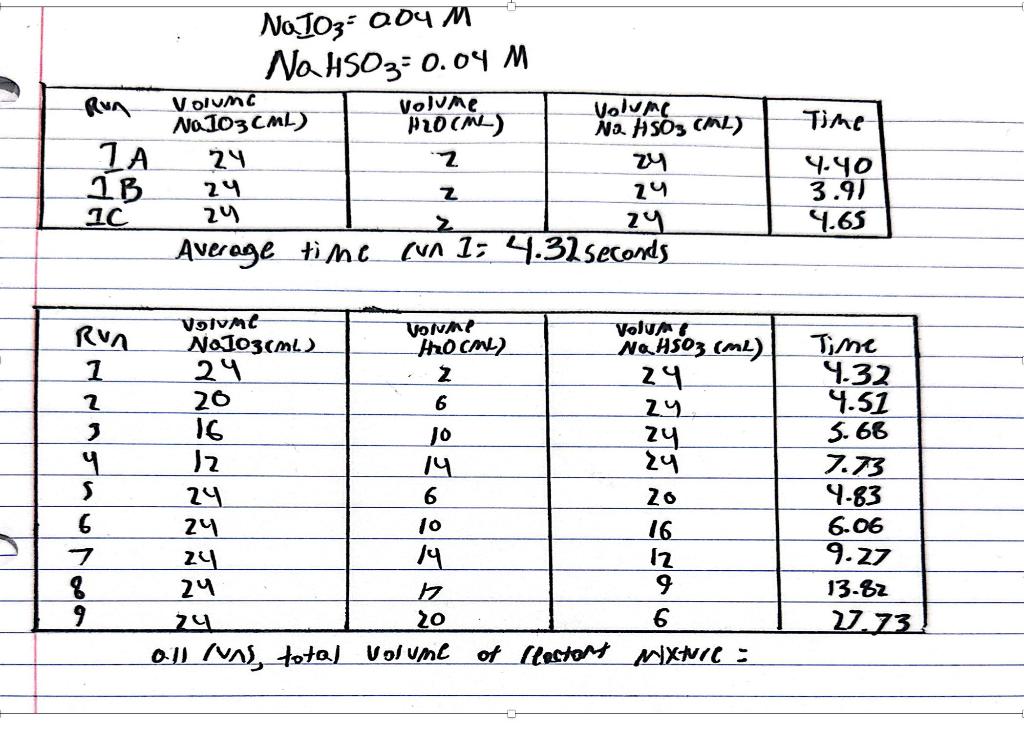 NaIO3= 0.04 M
NaHSO3= 0.04 M
Run Volume NaIO3 (mL) Volume H2O (mL) Volume NaHSO3 (mL) Time
1A 24 2 24 4.40
1B 24 2 24 3.91
1C 24 2 24 4.65
Average time run 1= 4.32 seconds
Run Volume NaIO3 (mL) Volume H2O (mL) Volume NaHSO3 (mL) Time
1 24 2 24 4.32
2 20 6 24 4.51
3 16 10 24 5.68
4 12 14 24 7.73
5 24 6 20 4.83
6 24 10 16 6.06
7 24 14 12 9.27
8 24 17 9 13.82
9 24 20 6 27.73
all runs, total volume of reactant mixture =